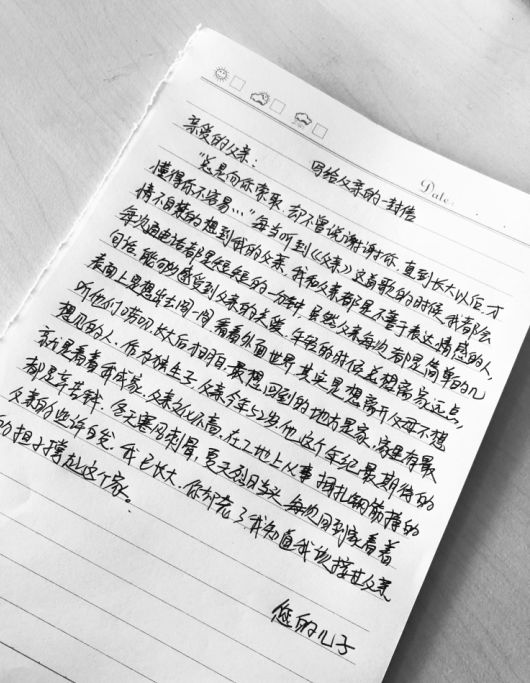 Date:
写给父亲的一封信
亲爱的父亲:
"总是向你索取,却不曾说谢谢你,直到长大以后,才
懂得你不容易…"每当听到《父亲》这首歌的时候,我都会
情不自禁的想到我的父亲。我和父亲都是不善于表达情感的人,
每次通电话都是短短的一分钟,虽然父亲每次都是简单的几
句话,能句句感受到父亲的关爱。年轻的时候总想离家远点,
表面上是想出去闯一闯,看看外面世界,其实是想离开父母不想
听他们唠叨,长大后相反,最想回到的地方是家,家里有最
想见的人。作为独生子,父亲今年52岁,他这个年纪最期待的
就是看着我成家。父亲文化不高,在工地上从事捆扎钢筋,挣的
都是辛苦钱。冬天寒风刺骨,夏天烈日当头,每次回到家看着
父亲的些许白发,我已长大,你却老了,我知道我该接过父亲
的担子撑起这个家。
您的儿子